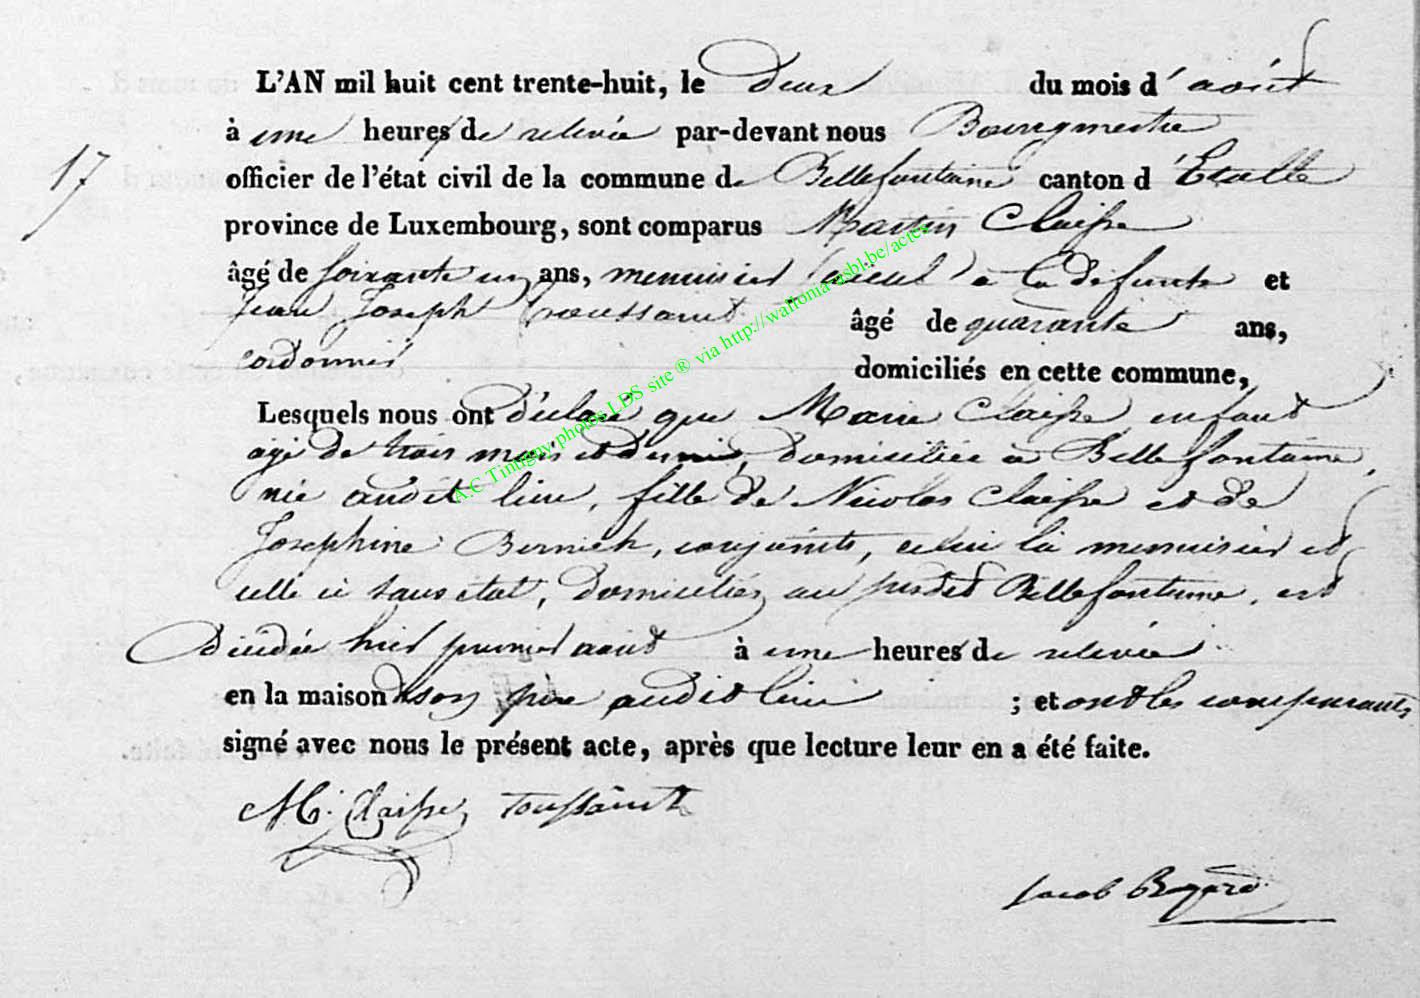 L'AN mil huit cent trente-huit, le Deux du mois d'août
à une heures de relevée par-devant nous Bourgmestre
17
officier de l'état civil de la commune de Bellefontaine canton d'Etalle
province de Luxembourg, sont comparus Martin Claisse
âgé de soixante un ans, menuisier (aieul) à la défunte et
Jean Joseph Toussaint âgé de quarante ans,
cordonnier domiciliés en cette commune,
Lesquels nous ont déclaré que Marie Claisse, enfant
âgé de trois mois et demi, domiciliée à Bellefontaine,
née audit lieu, fille de Nicolas Claisse et de
Josephine conjoints, celui là menuisier et
celle ci sans état, domiciliés au susdit Bellefontaine, est
décédée hier premier août à une heures de relevée
en la maison de son père audit lieu ; et ont les comparants
signé avec nous le présent acte, après que lecture leur en a été faite.
M. Claisse Toussaint
Jacob
A.C Tintigny photos LDS site ® via http://wallonia-asbl.be/actes